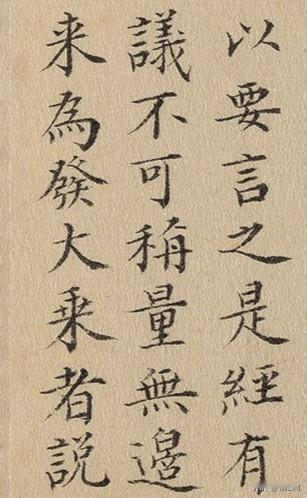 以要言之是經有
議不可稱量無邊
来為發大乗者説